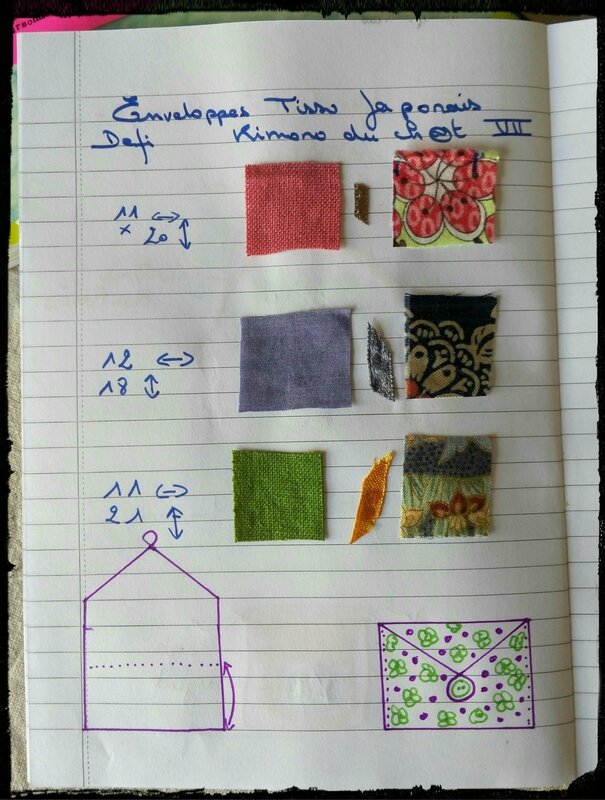 Enveloppes Tissu Japonais
Defi Kimono du Ch@t VII
11 ↔
× 20 ↕
12 ↔
18 ↕
11 ↔
21 ↕